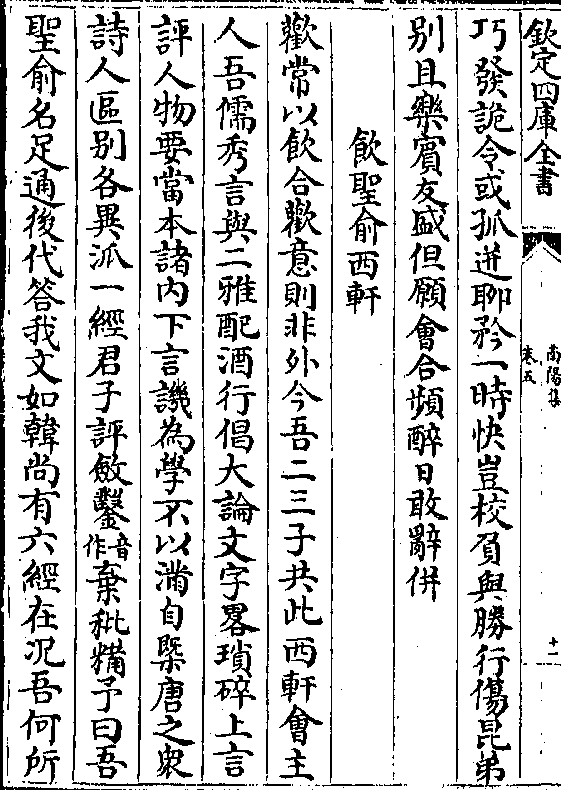 欽定四庫全書
南陽集
卷五
十一
巧發詭令或孤迸聊矜一時快豈校負與勝行傷昆弟
别且樂賓友盛但願會合頻醉日敢辭併
飲聖俞西軒
歡常以飲合歡意則非外今吾二三子共此西軒會主
人吾儒秀言與二雅配酒行倡大論文字畧瑣碎上言
評人物要當本諸内下言譏為學不以滿自槩唐之衆
詩人區别各異派一經君子評敏鑿音作棄秕粺予曰吾
聖俞名足通後代答我文如韓尚有六經在况吾何所